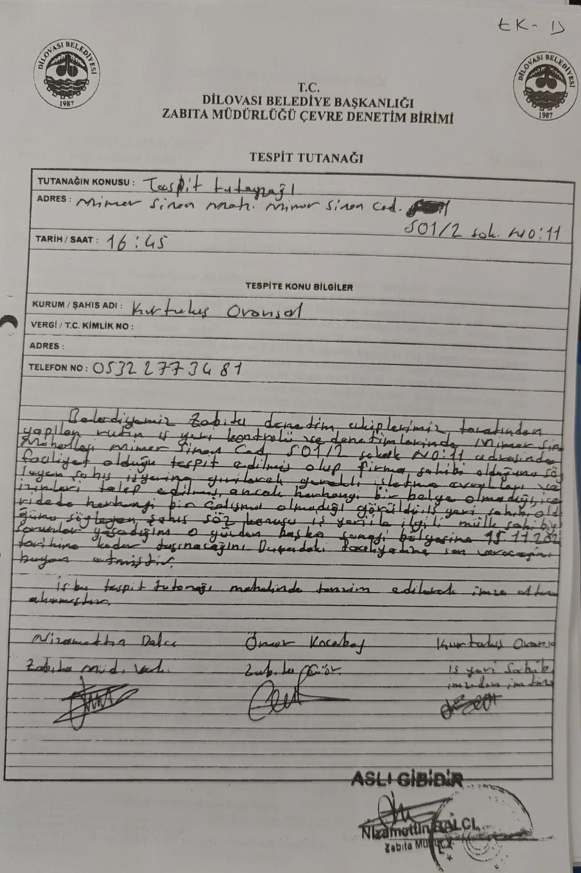 EK-D
DİLOVASI BELEDİYESİ
1987
DİLOVASI BELEDİYESİ
1987
T.C.
DİLOVASI BELEDİYE BAŞKANLIĞI
ZABITA MÜDÜRLÜĞÜ ÇEVRE DENETİM BİRİMİ
TESPİT TUTANAĞI
TUTANAĞIN KONUSU : Tespit tutanağı
ADRES : Mimar Sinan Mah. Mimar Sinan Cad.
501/2 sok. No:11
TARİH / SAAT : 16:45
TESPİTE KONU BİLGİLER
KURUM / ŞAHIS ADI : Kurtuluş Oransal
VERGİ / T.C. KİMLİK NO :
ADRES :
TELEFON NO : 0532 277 34 81
Belediyemiz Zabıta denetim ekiplerimiz tarafından
yapılan rutin iş yeri kontrolü ve denetimlerinde Mimar Sin
Mahallesi Mimar Sinan Cad. 501/2 sokak No:11 adresinde
faaliyet olduğu tespit edilmiş olup firma sahibi olduğunu sö
leyen şahıs işyerine girilerek gerekli işletme evrakları ve
izinleri talep edilmiş ancak herhangi bir belge olmadığı, içe
ride de herhangi bir çalışma olmadığı görüldü. iş yeri sahibi old
ğunu söyleyen şahıs söz konusu iş yeri ile ilgili mülk sahibiy
sorunlar yaşadığını o yüzden başka sanayi bölgesine
tarihine kadar taşınacağını faaliyetine son vereceğini
beyan etmiştir.
İş bu tespit tutanağı mahalinde tanzim edilerek imza altına
alınmıştır.
Nizamettin Balcı Ömer Kocabaş Kurtuluş Oransa
Zabıta Müd. Vek. Zabıta İş yeri Sahibi
imzadan imtina
ASLI GİBİDİR
Nizamettin BALCI
Zabıta Müdür V.